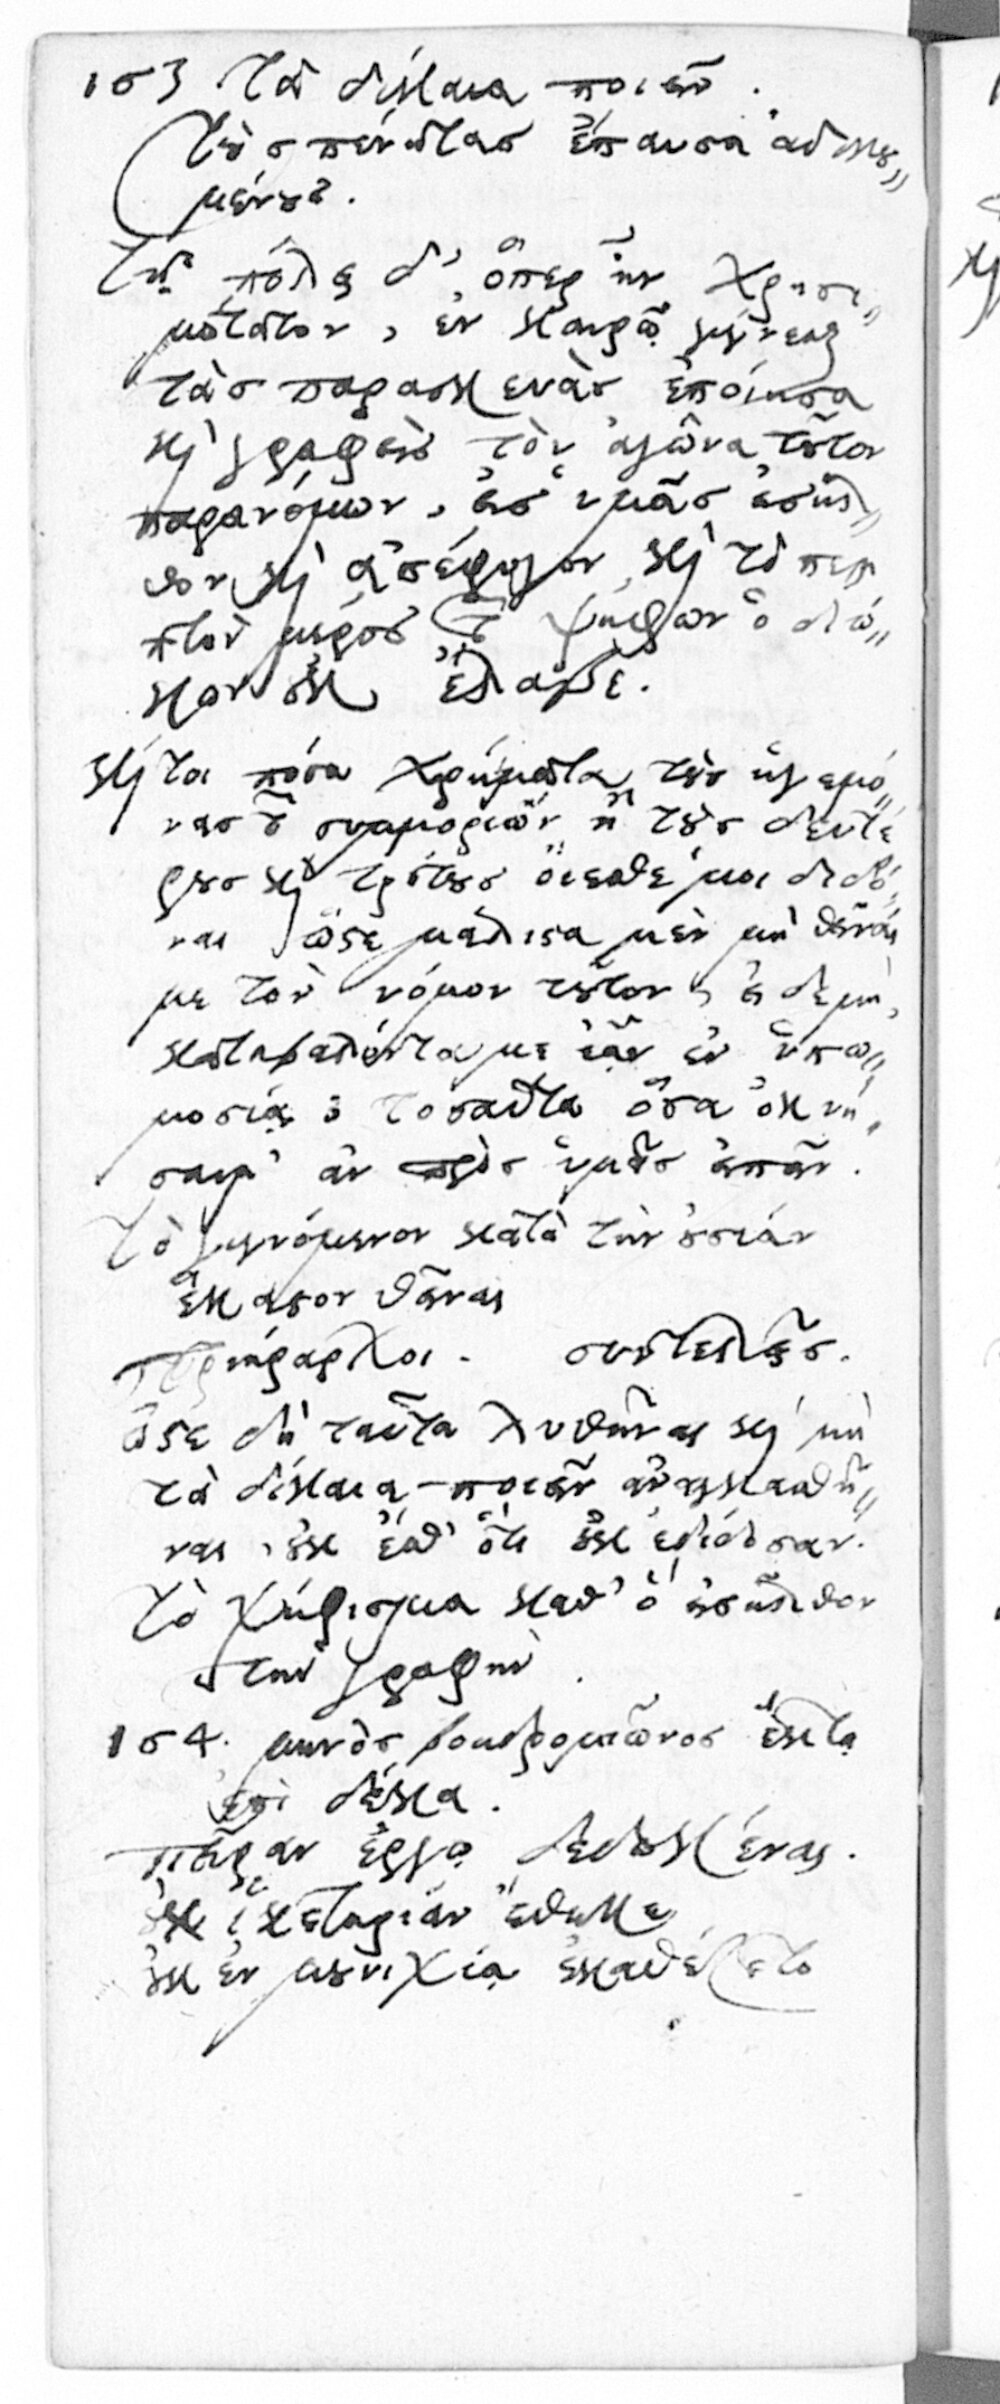 153 τὰ δίκαια ποιεῖν.
τοὺς πένητας ἔπαυσα ἀδικου„
μένους.
τῇ πόλει δ', ὅπερ ἦν χρησι„
μώτατον, ἐν καιρῷ γίγνεσθαι
τὰς παρασκευὰς ἐποίησα
καὶ γραφεὶς τὸν ἀγῶνα τοῦτον
παρανόμων, εἰς ὑμᾶς εἰσῆλ„
θον καὶ ἀπέφυγον, καὶ τὸ πεμ
πτον μέρος τῶν ψήφων ὁ διώ„
κων οὐκ ἔλαβε.
καί τοι πόσα χρήματα τοὺς ἡγεμό„
νας τῶν συμμοριῶν ἢ τοὺς δευτέ
ρους καὶ τρίτους οἴεσθέ μοι διδό„
ναι ὥστε μάλιστα μὲν μὴ θεῖναί
με τὸν νόμον τοῦτον, εἰ δὲ μὴ,
καταβαλόντα με ἐᾶν ἐν ὑπω„
μοσίᾳ; τοσαῦτα ὅσα ὀκνή„
σαιμ' ἂν πρὸς ὑμᾶς εἰπεῖν.
τὸ γιγνόμενον κατὰ τὴν οὐσίαν
ἕκαστον θεῖναι
τριήραρχοι. συντελεῖς.
ὥστε δὴ ταῦτα λυθῆναι καὶ μὴ
τὰ δίκαια ποιεῖν ἀναγκασθῆ„
ναι, οὐκ ἔσθ' ὅτι οὐκ ἐδίδοσαν.
τὸ ψήφισμα καθ' ὃ εἰσῆλθον
τὴν γραφὴν.
154. μηνὸς βοηδρομιῶνος ἕκτῃ
ἐπὶ δέκα.
πεῖραν ἔργῳ δεδωκέναι.
οὐχ ἱκετηρίαν ἔθηκε
οὐκ ἐν μουνιχίᾳ ἐκαθέζετο